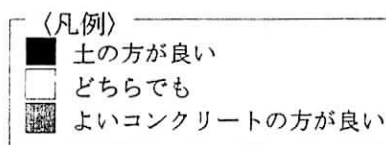 〈凡例〉
土の方が良い
どちらでも
よいコンクリートの方が良い